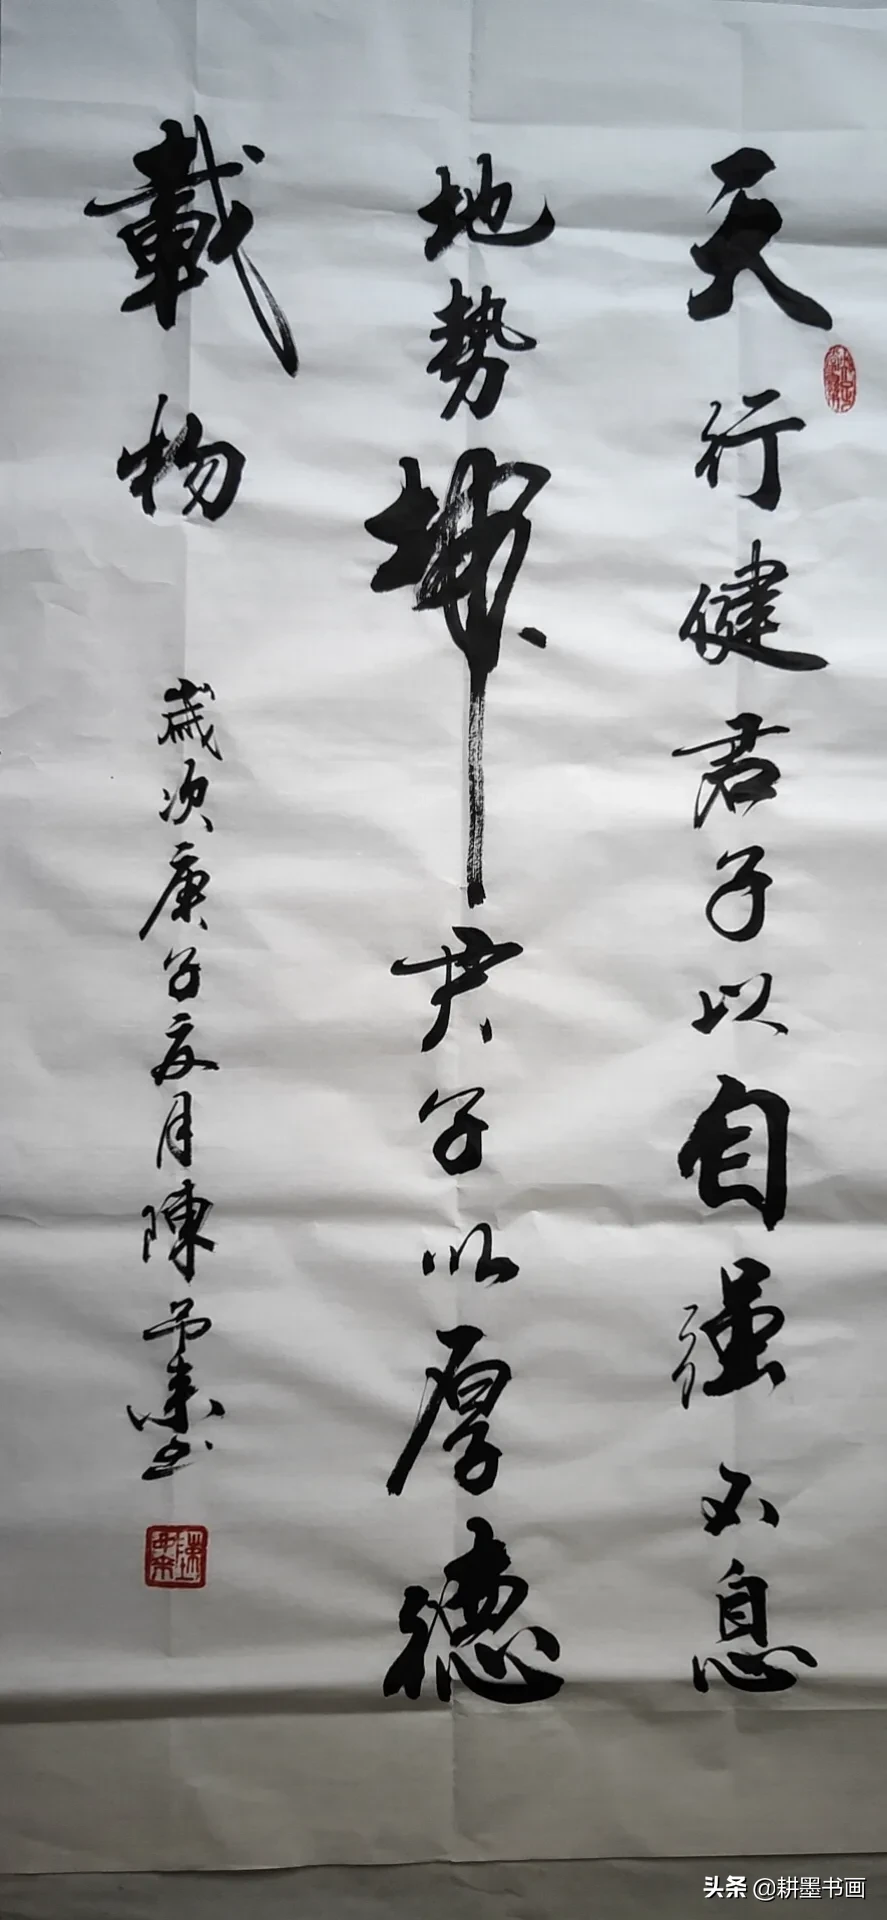 天行健君子以自强不息
地勢坤君子以厚德
載物
歲次庚子夏月陳
头条 @耕墨书画